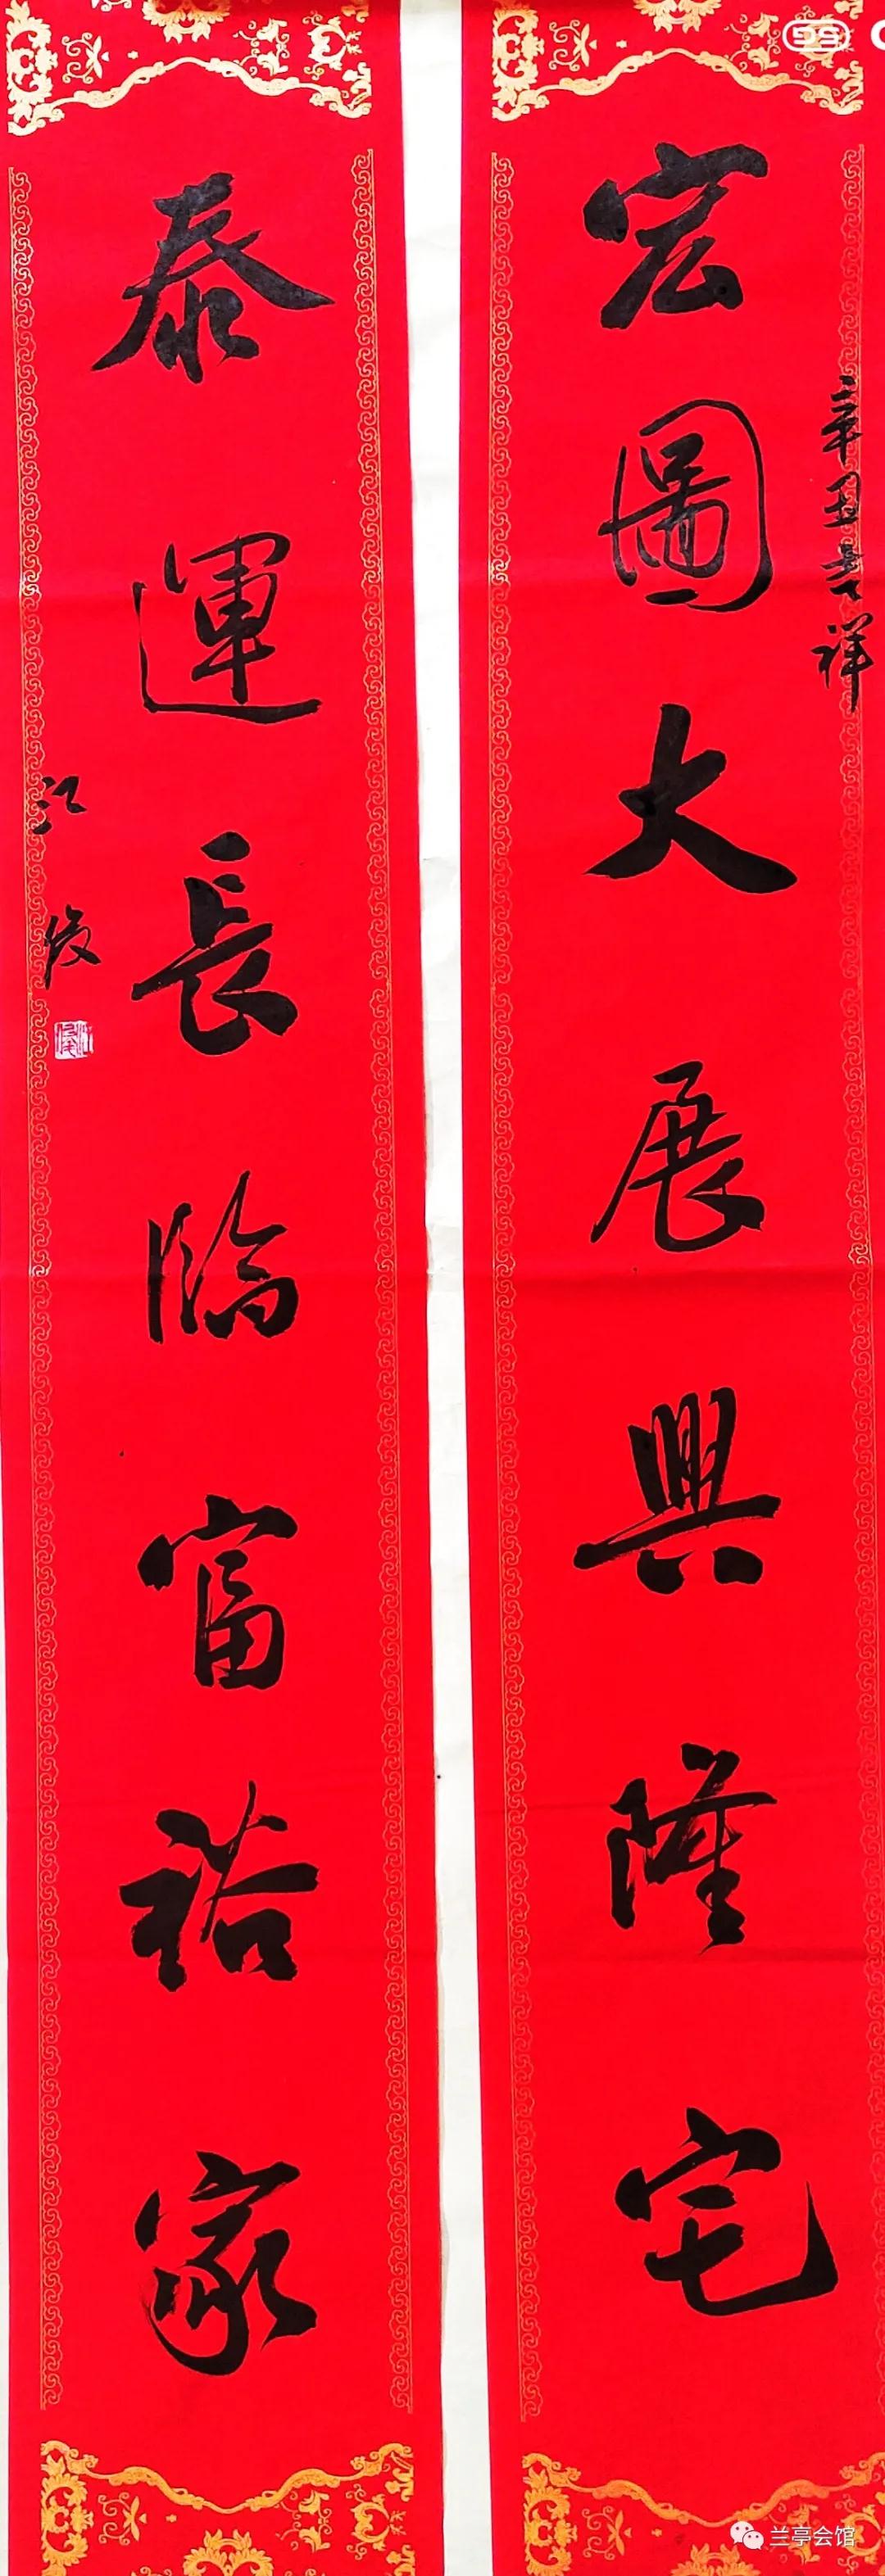 辛丑吉祥
宏圖大展興隆宅
泰運長臨富裕家
江俊
兰亭会馆